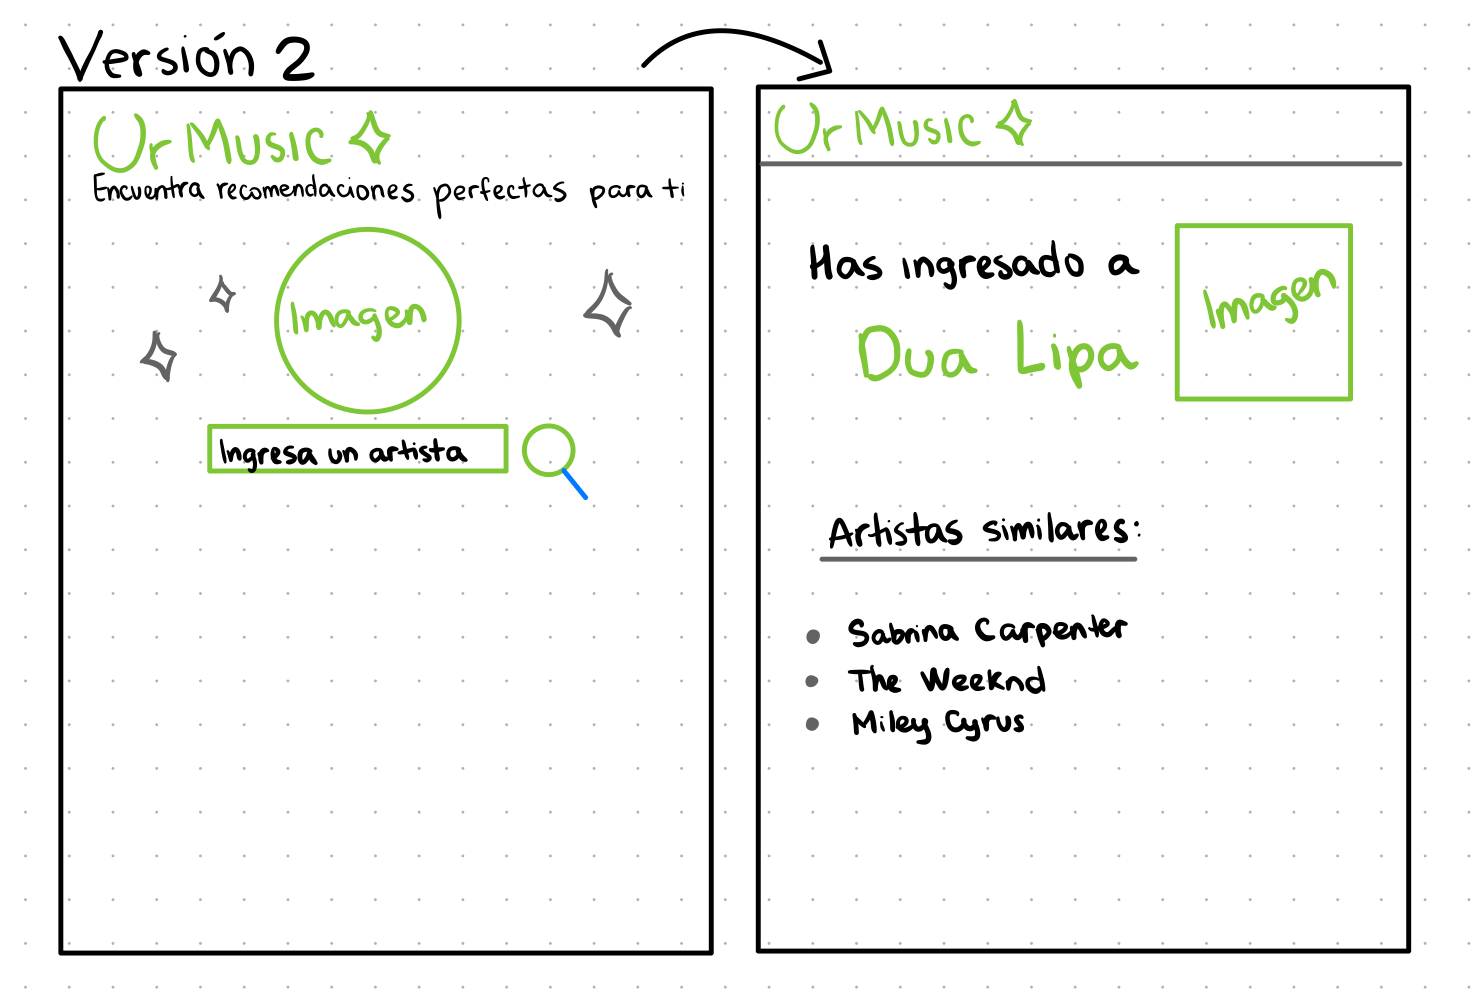 Versión 2
Ur Music
Encuentra recomendaciones perfectas para ti
Imagen
Ingresa un artista
Ur Music
Has ingresado a
Dua Lipa
Imagen
Artistas similares:
Sabrina Carpenter
The Weeknd
Miley Cyrus